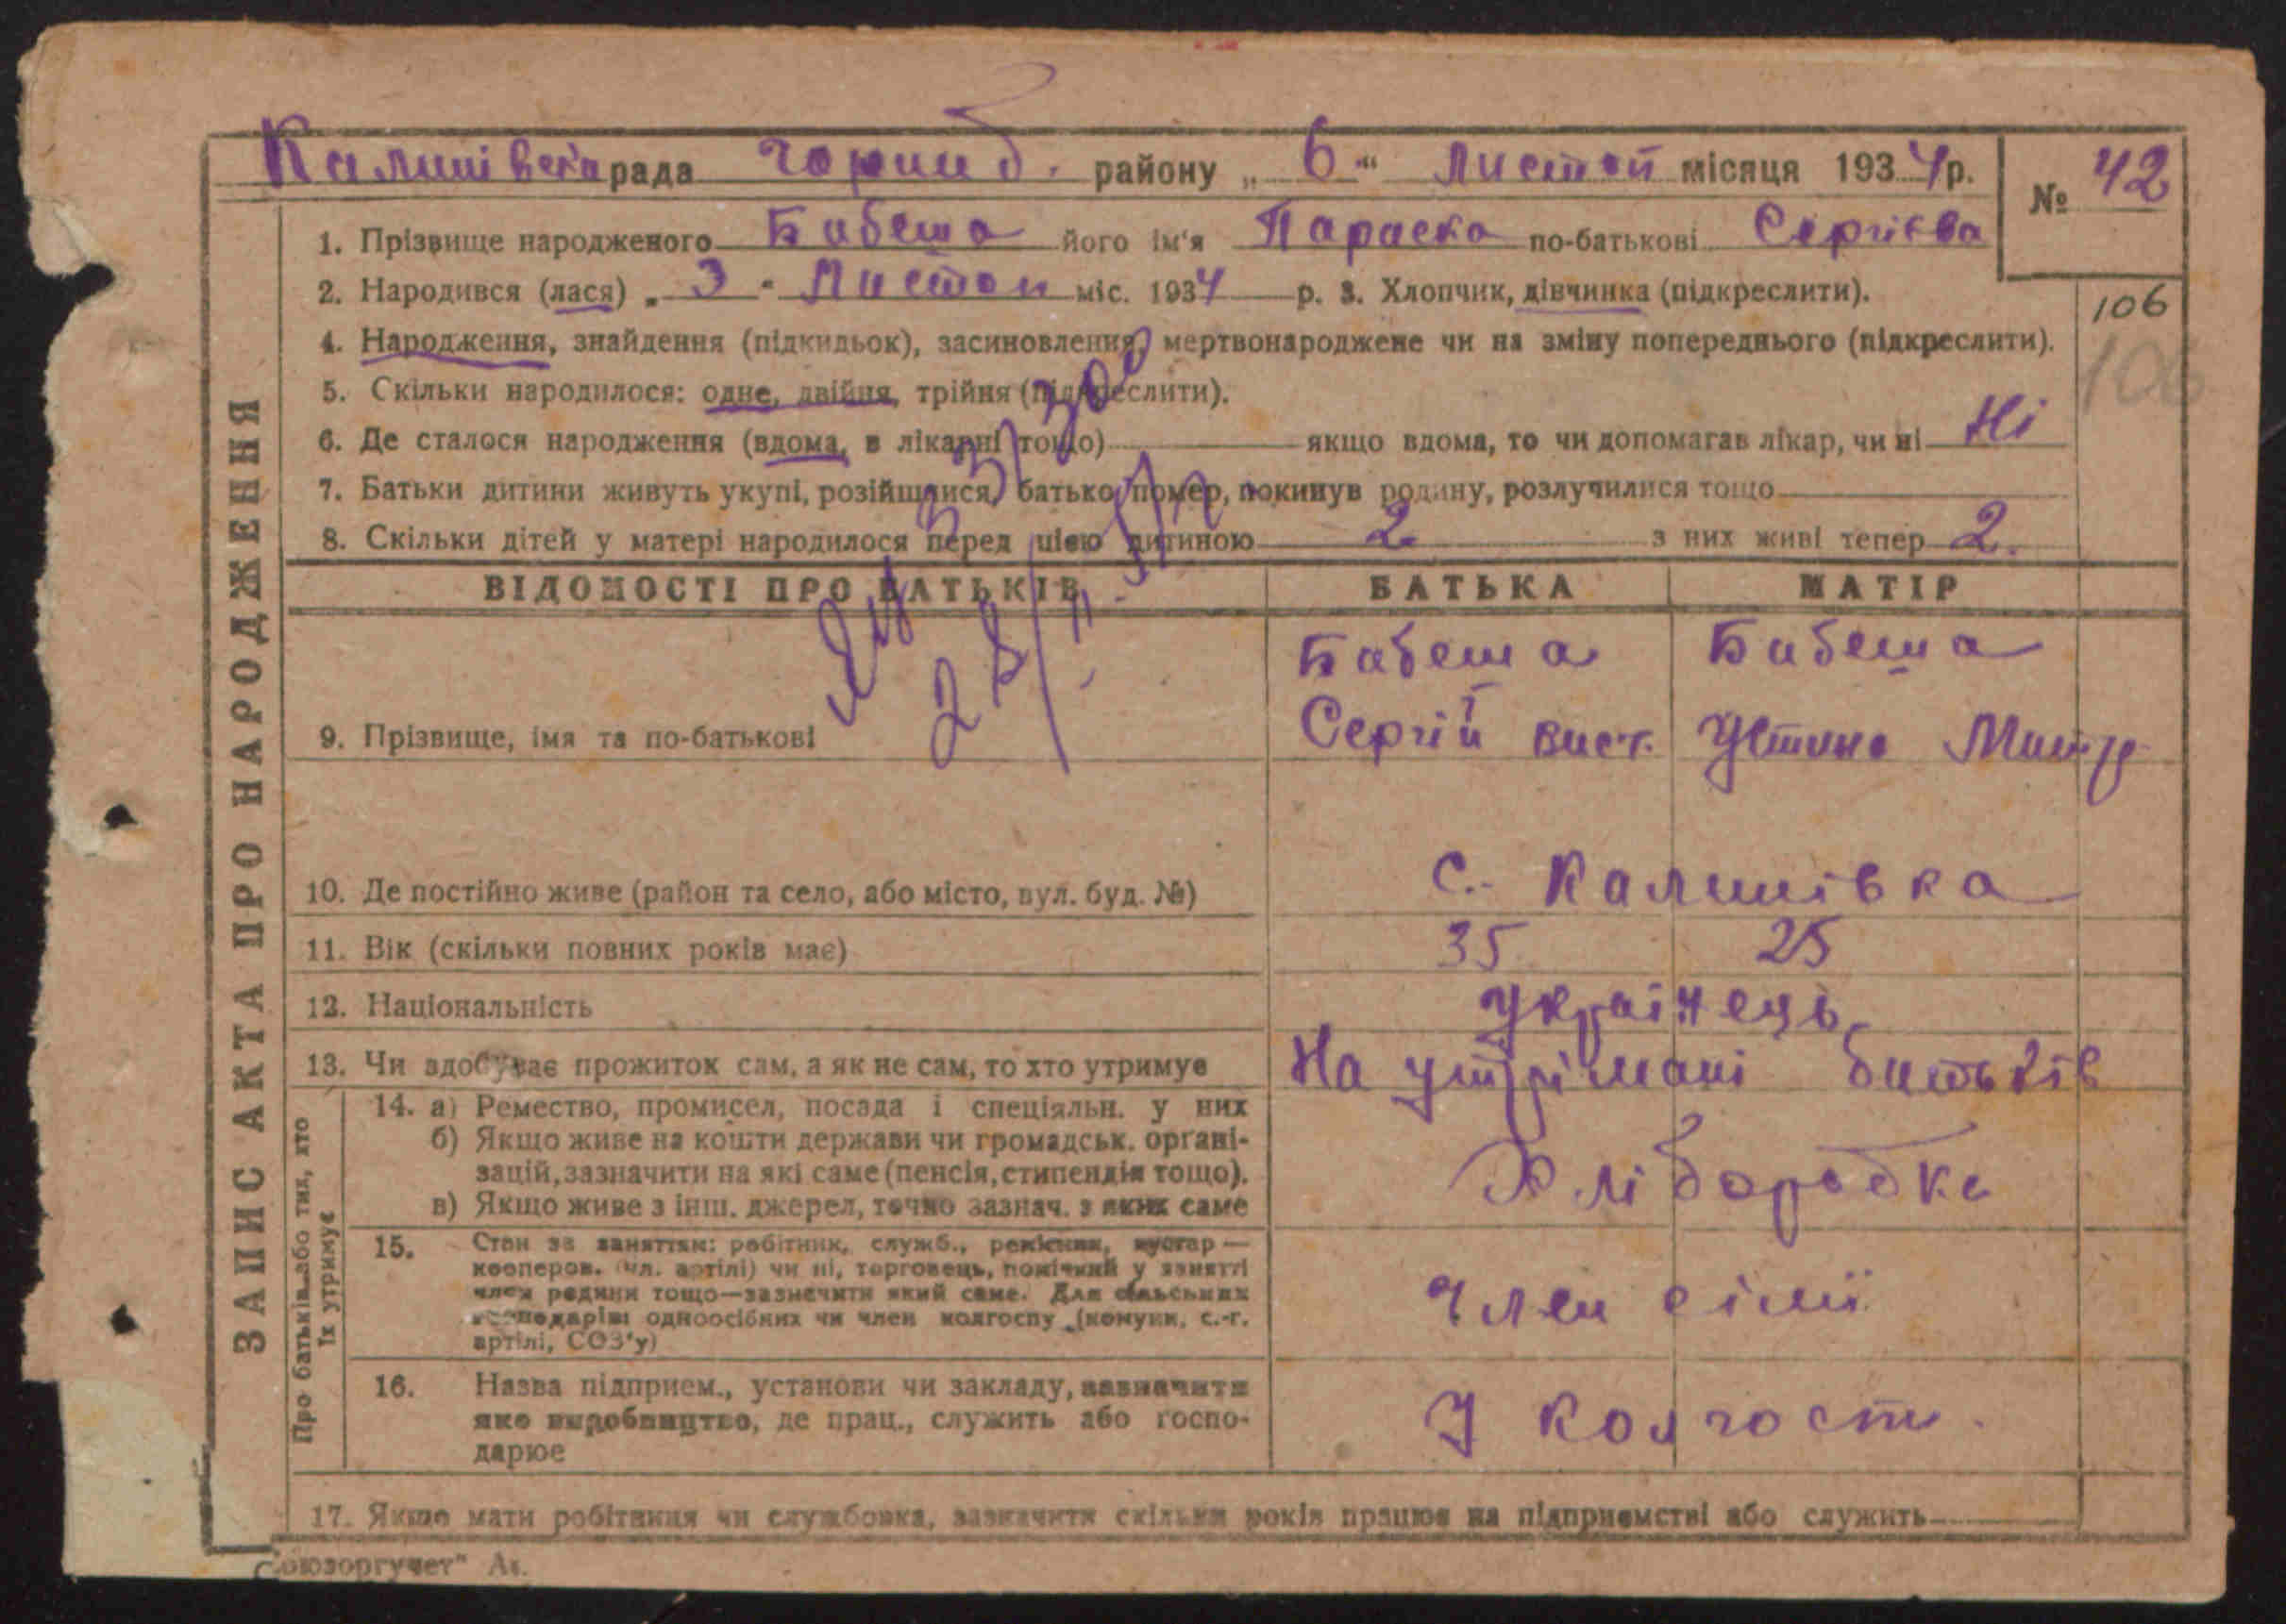 Калинівська рада Горин б. району „ 6 “ Листоп місяця 1934 р.
№ 42
1. Прізвище народженого Бабеша його ім'я Параска по-батькові Сергієва
2. Народився (лася) „ 3 " Листоп міс. 1934 р. 3. Хлопчик, дівчинка (підкреслити).
106
4. Народження, знайдення (підкидьок), засиновлення, мертвонароджене чи на зміну попереднього (підкреслити).
106
5. Скільки народилося: одне, двійня, трійня (підкреслити).
6. Де сталося народження (вдома, в лікарні тощо) якщо вдома, то чи допомагав лікар, чи ні Ні
7. Батьки дитини живуть укупі, розійшлися, батько помер, покинув родину, розлучилися тощо
8. Скільки дітей у матері народилося перед цією дитиною 2 з них живі тепер 2.
ВІДОМОСТІ ПРО БАТЬКІВ БАТЬКА МАТІР
Бабеша Бабеша
9. Прізвище, імя та по-батькові Сергій Устина
10. Де постійно живе (район та село, або місто, вул. буд. №) с. Калинівка
11. Вік (скільки повних років має) 35 25
12. Національність Украінець
13. Чи здобуває прожиток сам, а як не сам, то хто утримує На утрімані батьків
14. а) Ремество, промисел, посада і спеціяльн. у них
б) Якщо живе на кошти держави чи громадськ. органі-
зацій, зазначити на які саме (пенсія, стипендія тощо).
в) Якщо живе з інш. джерел, точно зазнач. з яких саме
Хліборобка
15. Стан за заняттям: робітник, служб., ремісник, кустар —
кооперов. (чл. артілі) чи ні, торговець, помічний у занятті
член родини тощо—зазначити який саме. Для сільських
господарів: одноосібник чи член колгоспу (комуни, с.-г.
артілі, СОЗ'у)
Член сімії
16. Назва підприєм., установи чи закладу, зазначити
яке виробництво, де прац., служить або госпо-
дарює
У колгости
17. Якщо мати робітниця чи службовка, зазначити скільки років працює на підприємстві або служить
ЗАПИС АКТА ПРО НАРОДЖЕННЯ
Про батьків або тих, хто
їх утримує
Союзоргучет"